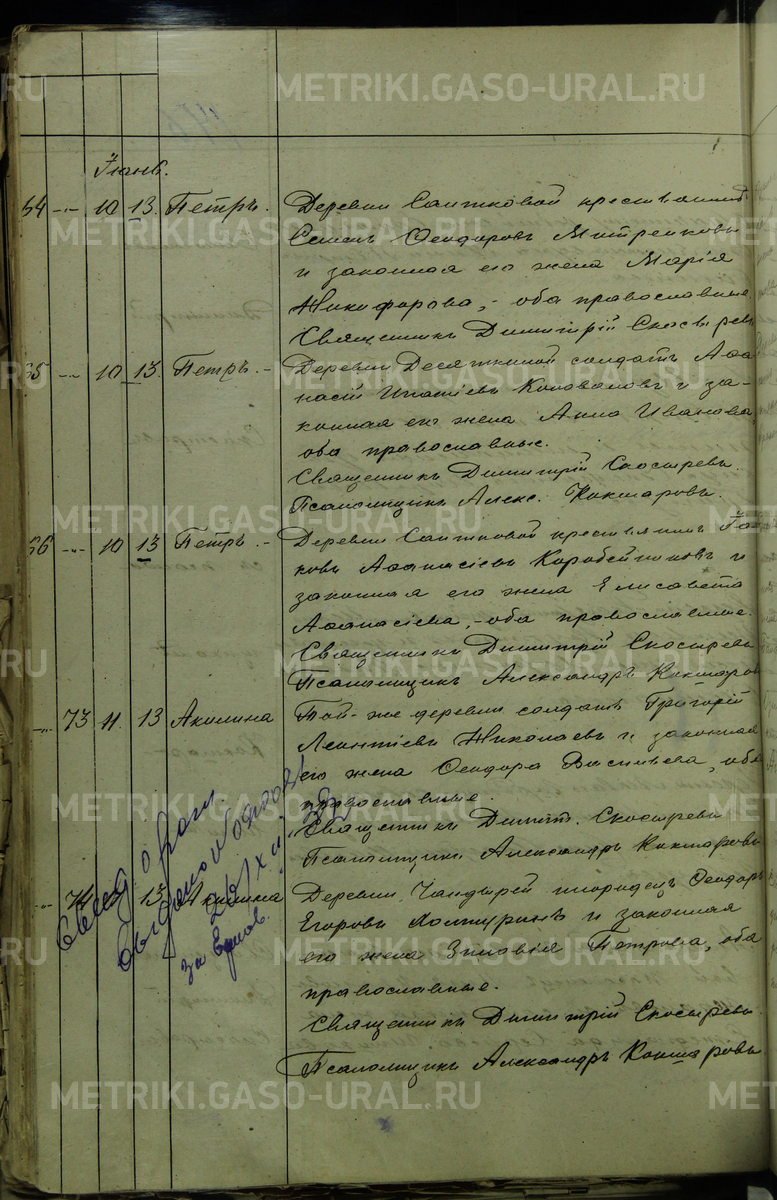 Іюнь.
64 10 13. Петръ.
Деревни Саитковой крестьянинъ
Семенъ Ѳеодоровъ
и законная его жена Марія
Никифорова, - оба православные.
Священникъ Димитрій Скосыревъ
65 10 13. Петръ.
Деревни Десяткиной солдатъ Аѳа-
насій Игнатіевъ Коноваловъ и за-
конная его жена Анна Иванова,
оба православные.
Священникъ Димитрій Скосыревъ.
Псаломщикъ Алекс. Кокшаровъ.
66 10 13 Петръ.
Деревни Саитковой крестьянинъ Іа-
ковъ Аѳанасіевъ Коробейниковъ и
законная его жена Елисавета
Аѳанасіева, - оба православные.
Священникъ Димитрій Скосыревъ
Псаломщикъ Александръ Кокшаровъ
73 11. 13 Акилина
Той-же деревни солдатъ Григорій
Леонтіевъ Николаевъ и законная
его жена Ѳеодора Васильева, оба
православные.
Священникъ Димит. Скосыревъ
Псаломщикъ Александръ Кокшаровъ
74 13 Акилина
Деревни Чандырей инородецъ Ѳеодоръ
Егоровъ и законная
его жена Зиновія Петрова, оба
православные.
Священникъ Димитрій Скосыревъ.
Псаломщикъ Александръ Кокшаровъ
о рожд.
выдано
METRIKI.GASO-URAL.RU